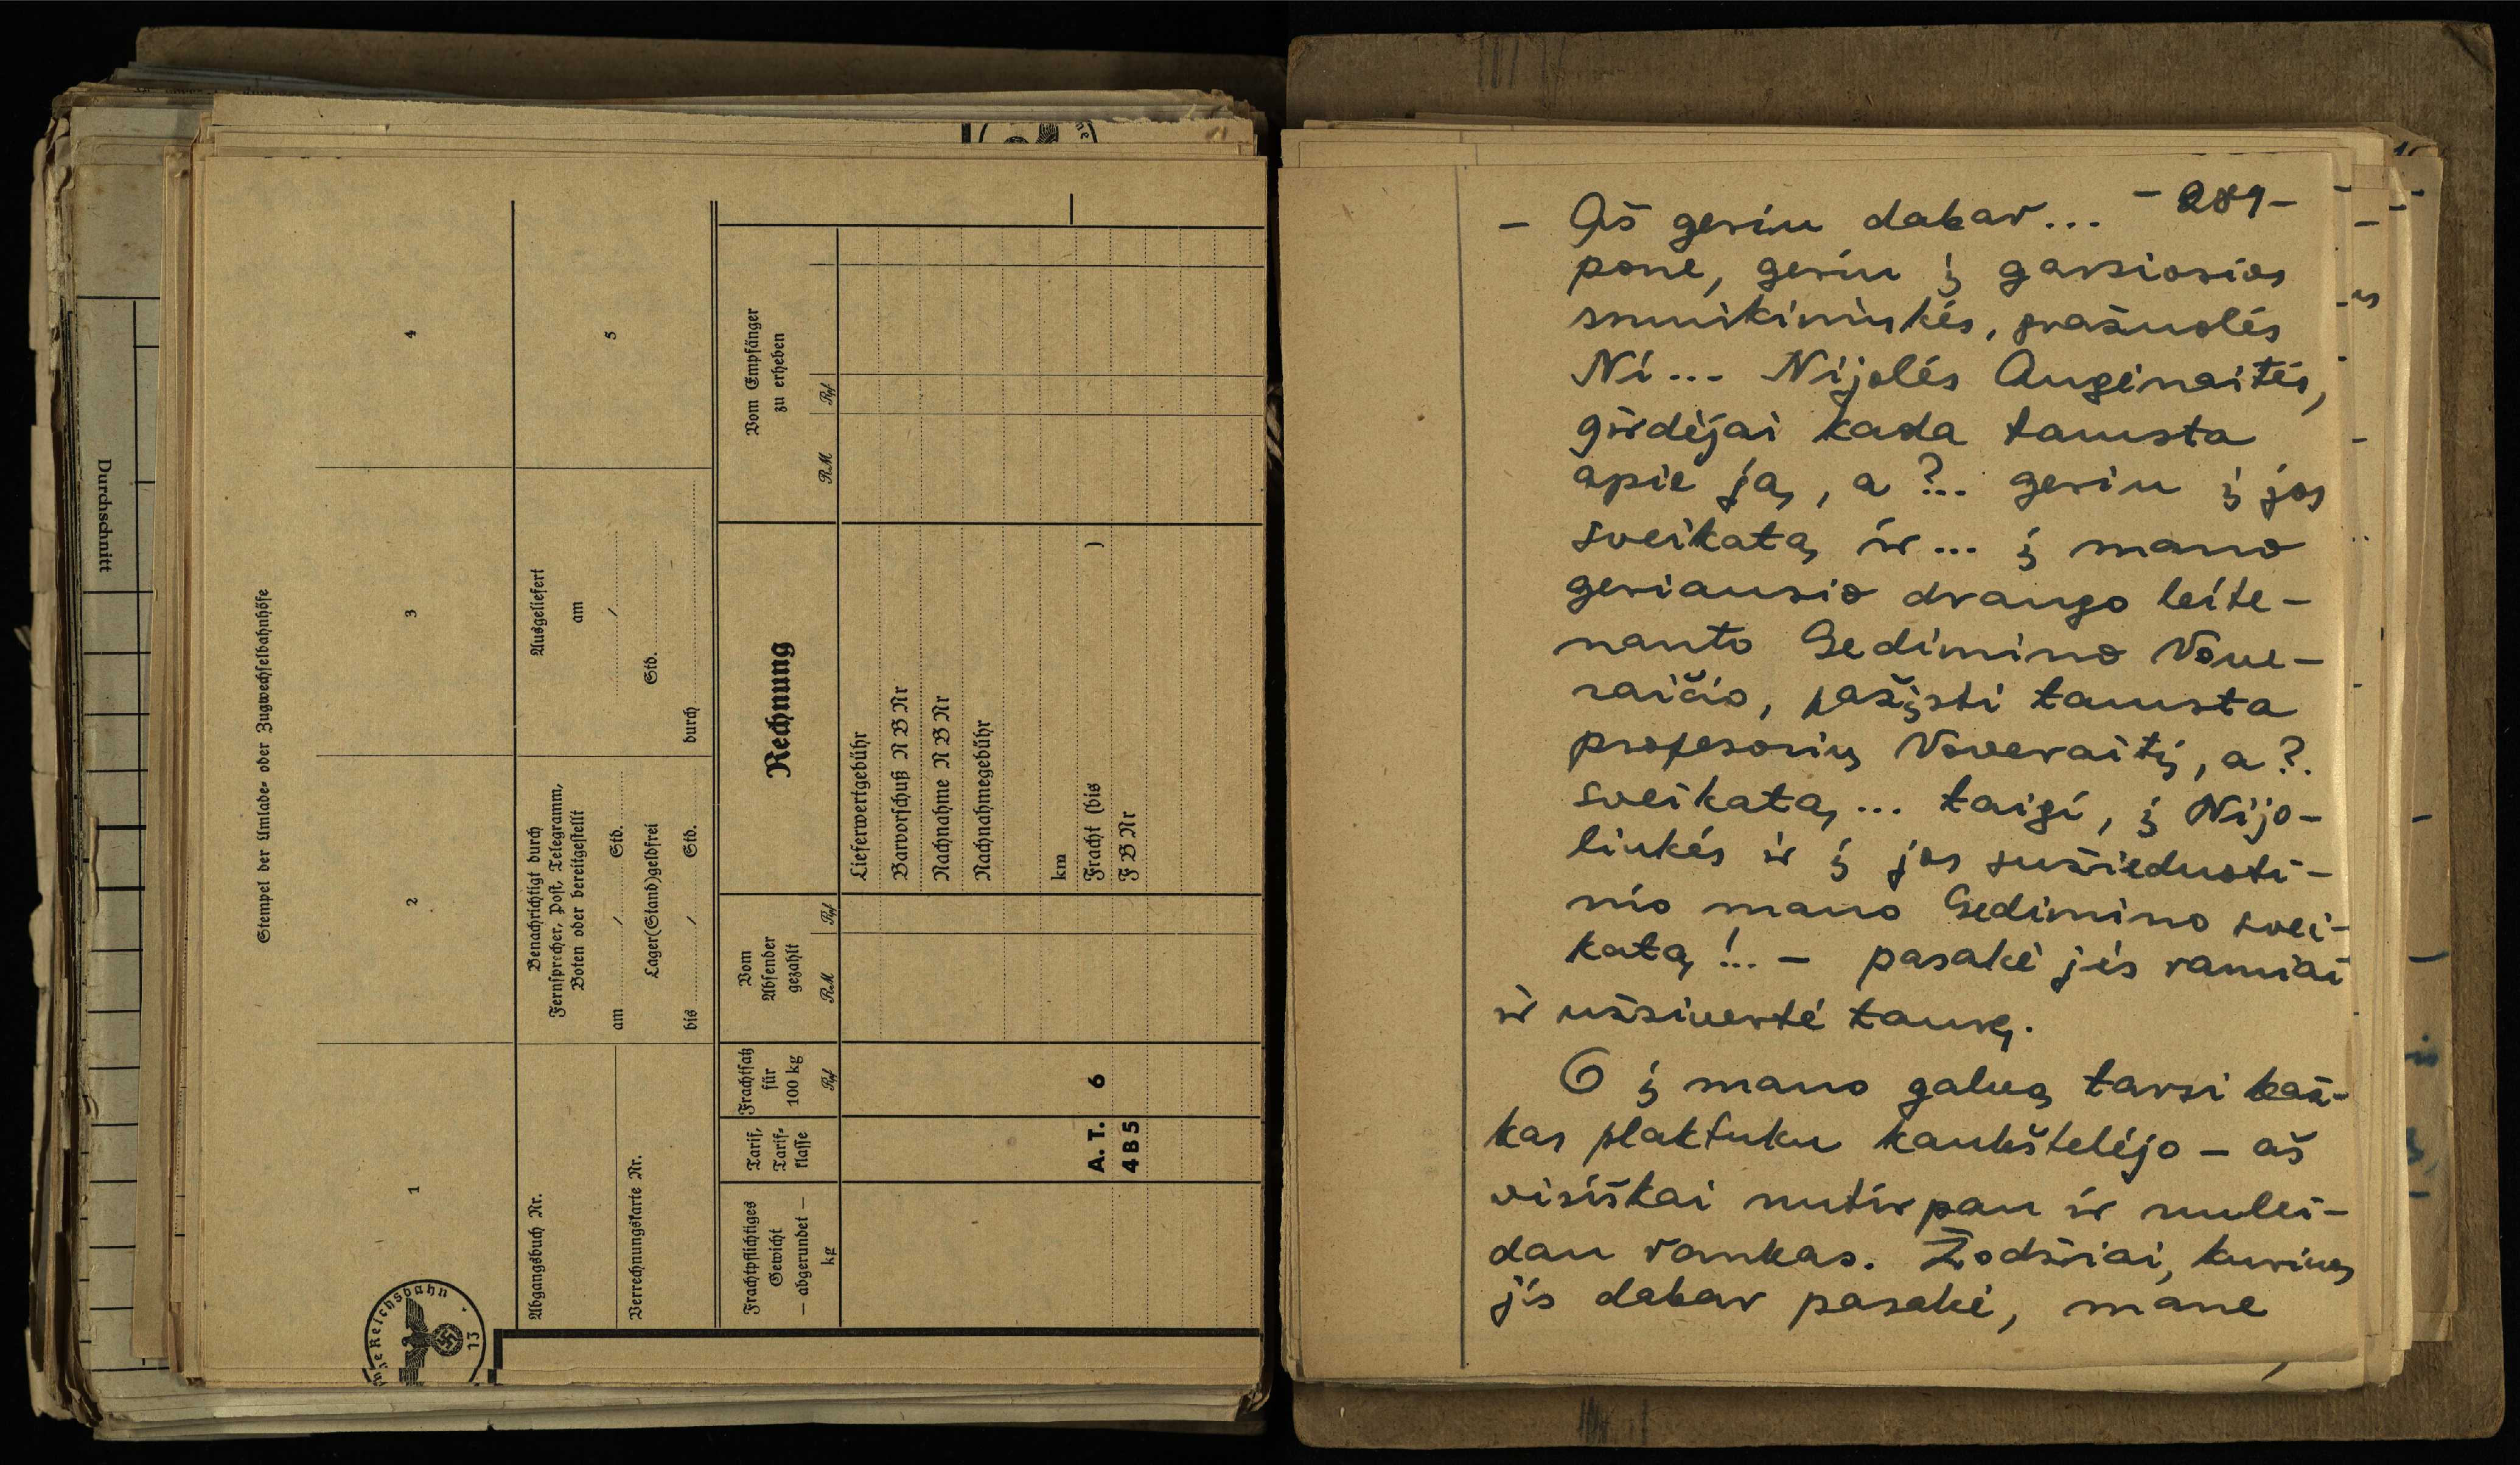 Durchschnitt
Stempel der Umlade- oder Zugwechselbahnhöfe
1
2
3
4
Abgangsbuch Nr.
Verrechnungskarte Nr.
Benachrichtigt durch
Fernsprecher, Post, Telegramm,
Boten oder bereitgestellt
am / Std.
Lager(Stand)geldfrei
bis / Std.
Ausgeliefert
am
/
Std.
durch
5
Frachtpflichtiges
Gewicht
— abgerundet —
kg
Tarif,
Tarif-
klasse
Frachtsatz
für
100 kg
Rpf
Vom
Absender
gezahlt
RM Rpf
Rechnung
Vom Empfänger
zu erheben
RM Rpf
Lieferwertgebühr
Barvorschuß N B Nr
Nachnahme N B Nr
Nachnahmegebühr
km
A. T. 6 Fracht (bis )
4 B 5 F B Nr
Reichsbahn
13
- 289 -
– Aš geriu dabar...
pone, geriu į garsiosios
smuikininkės, gražuolės
Ni... Nijolės Auginaitės,
girdėjai kada tamsta
apie ją, a?.. geriu į jos
sveikatą ir... į mano
geriausio draugo leite-
nanto Gedimino Vove-
raičio, pažįsti tamsta
profesorių Voveraitį, a?.
sveikatą... taigi, į Nijo-
liukės ir į jos sužieduoti-
nio mano Gedimino svei-
katą!.. – pasakė jis ramiai
ir užsivertė taurę.
O į mano galvą tarsi kaž-
kas plaktuku kaukštelėjo – aš
visiškai nutirpau ir nulei-
dau rankas. Žodžiai, kuriuos
jis dabar pasakė, mane